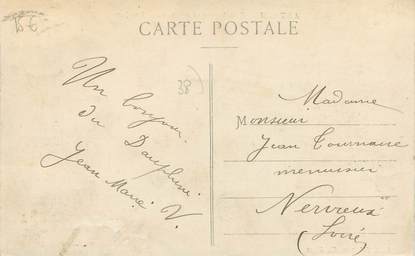 15 €
CARTE POSTALE
38)
Un bonjour
du Dauphiné
Jean Marie V.
Madame
Monsieur
Jean Tournaire
menuisier
Nervieux
(Loire